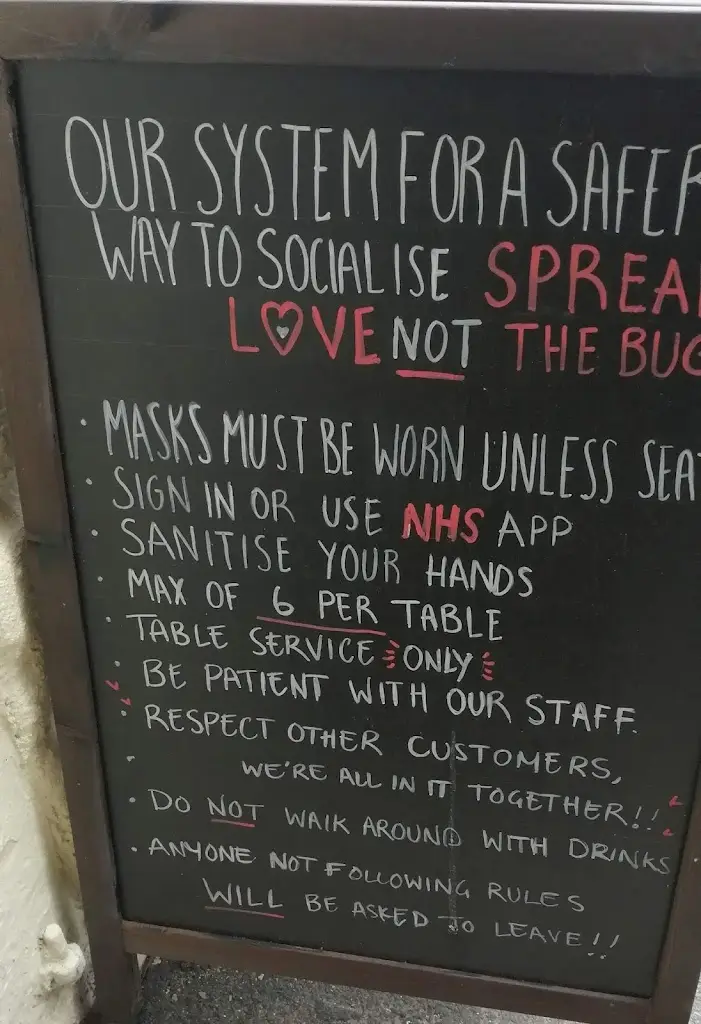 OUR SYSTEM FOR A SAFER
WAY TO SOCIALISE SPREA
LOVE NOT THE BUG
· MASKS MUST BE WORN UNLESS SEAT
· SIGN IN OR USE NHS APP
· SANITISE YOUR HANDS
· MAX OF 6 PER TABLE
· TABLE SERVICE ONLY
· BE PATIENT WITH OUR STAFF.
· RESPECT OTHER CUSTOMERS,
WE'RE ALL IN IT TOGETHER!!
· DO NOT WALK AROUND WITH DRINKS
· ANYONE NOT FOLLOWING RULES
WILL BE ASKED TO LEAVE!!